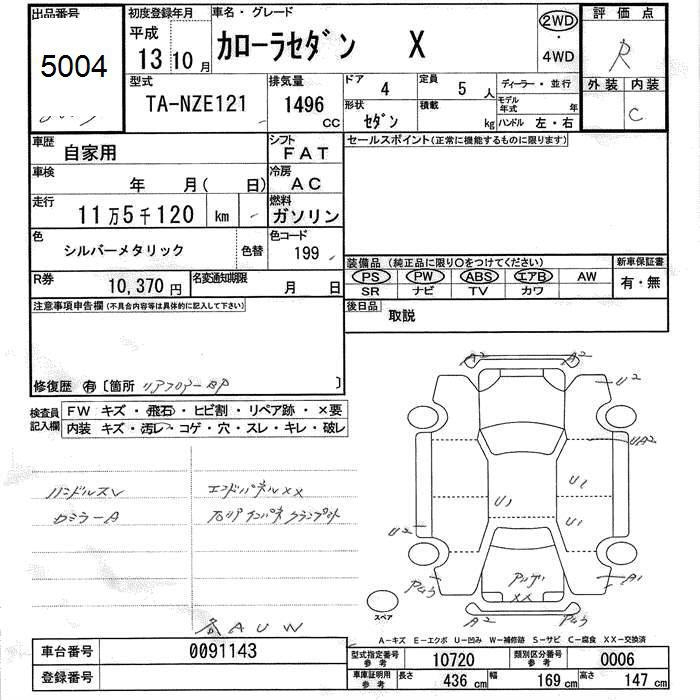 出品番号
5004
初度登録年月
平成
13 10月
車名・グレード
カローラセダン X
2WD
4WD
評価点
R
外装 内装
C
型式
TA-NZE121
排気量
1496
CC
ドア
4
定員
5 人
形状
セダン
積載
kg
ディーラー・並行
モデル年式 年
ハンドル 左・右
車歴
自家用
シフト
FAT
車検
年 月( 日)
冷房
AC
走行
11万5千120 km
燃料
ガソリン
色
シルバーメタリック
色替
色コード
199
R券
10,370 円
名変通知期限
月 日
セールスポイント(正常に機能するものに限ります)
装備品 (純正品に限り○をつけてください)
PS PW ABS エアB AW
SR ナビ TV カワ
新車保証書
有・無
後日品
取説
注意事項申告欄(不具合内容等は具体的に記入して下さい)
修復歴 有 〔箇所 リアフロアーBP 〕
検査員
記入欄
FW キズ・飛石・ヒビ割・リペア跡・×要
内装 キズ・汚レ・コゲ・穴・スレ・キレ・破レ
ハンドルスレ
エンドパネルXX
ロミラーA
各AUW
A2 A2
U2
UA2
U1
U1
U1
U2
A1
XX
A2
スペア
A-キズ E-エクボ U-凹み W-補修跡 S-サビ C-腐食 XX-交換済
車台番号
0091143
登録番号
型式指定番号
参考
10720
類別区分番号
参考
0006
車庫証明用
参考
長さ
436 cm
幅
169 cm
高さ
147 cm